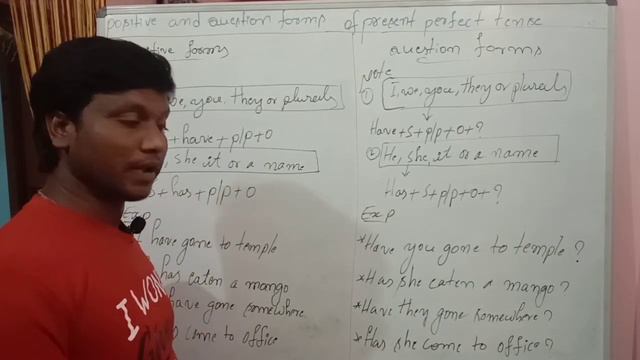 positive and question forms of present perfect tense
forms
we, you, they or plurals
+ have + p/p + O
she it or a name
+ has + p/p + O
Exp
have gone to temple
has eaten a mango
have gone somewhere
come to office
question forms
Note
① I, we, you, they or plurals
Have + S + p/p + O + ?
② He, she, it or a name
Has + S + p/p + O + ?
Exp
*Have you gone to temple?
*Has she eaten a mango?
*Have they gone somewhere?
*Has she come to office?
I WON